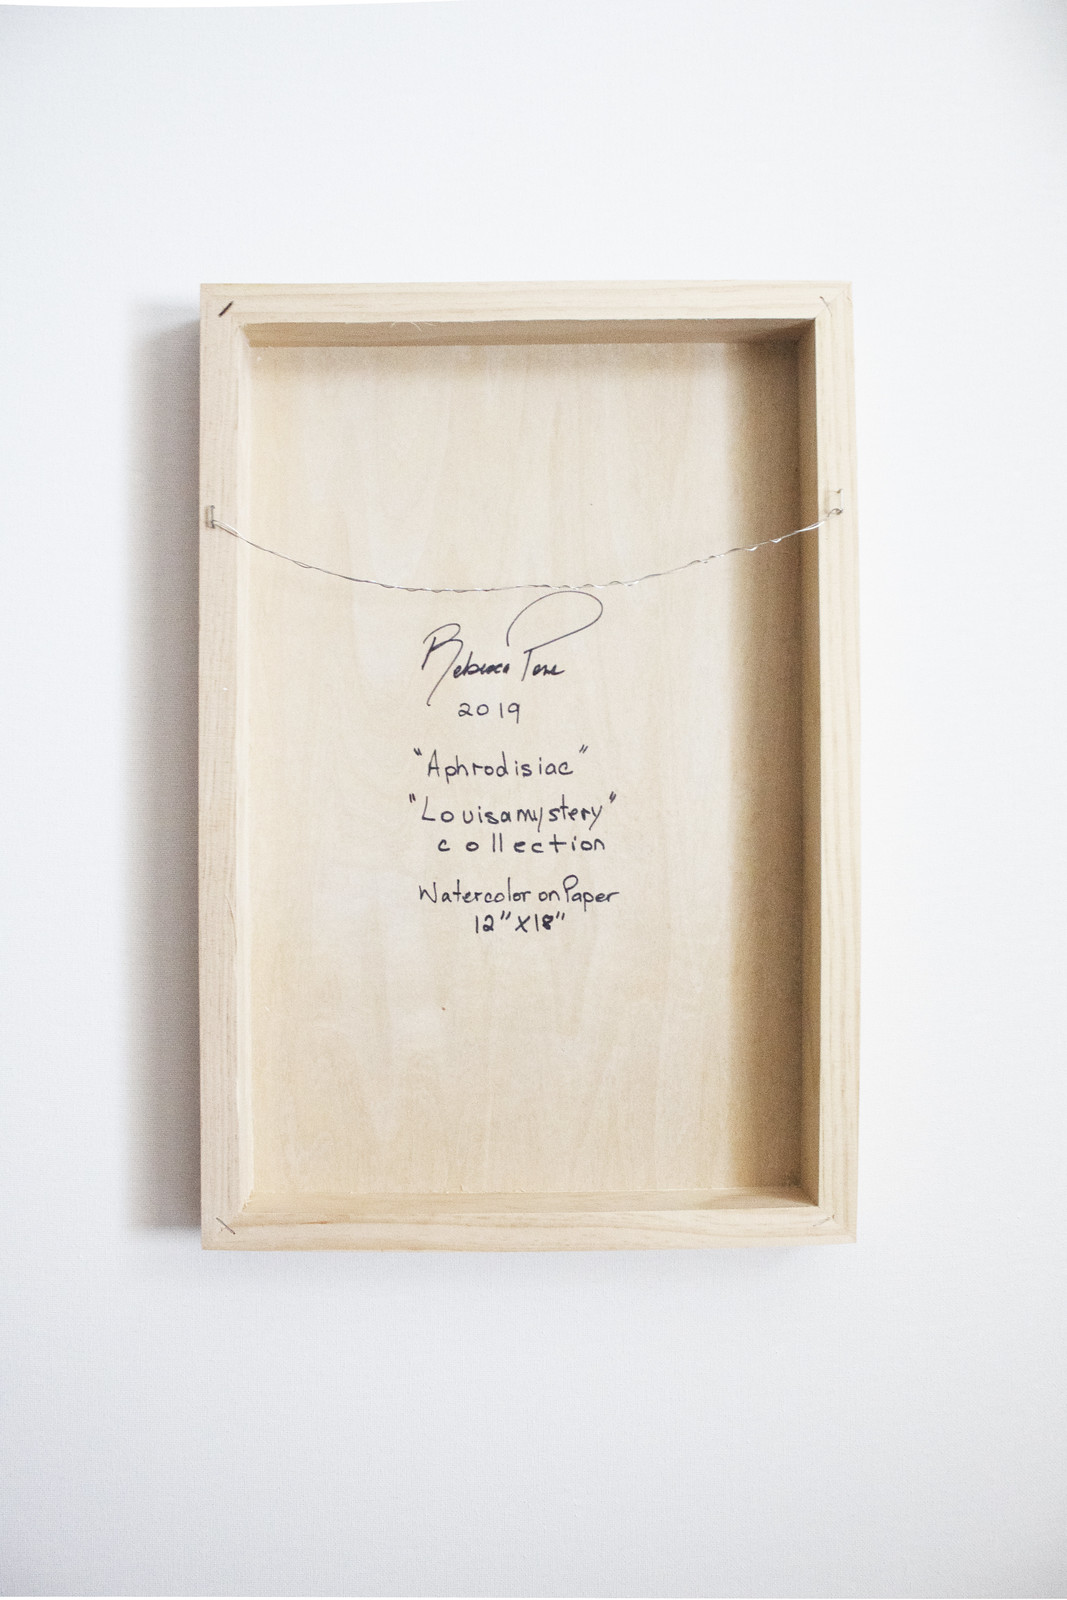 Rebecca
2019
"Aphrodisiac"
"Louisamystery"
collection
Watercolor on Paper
12" X 18"